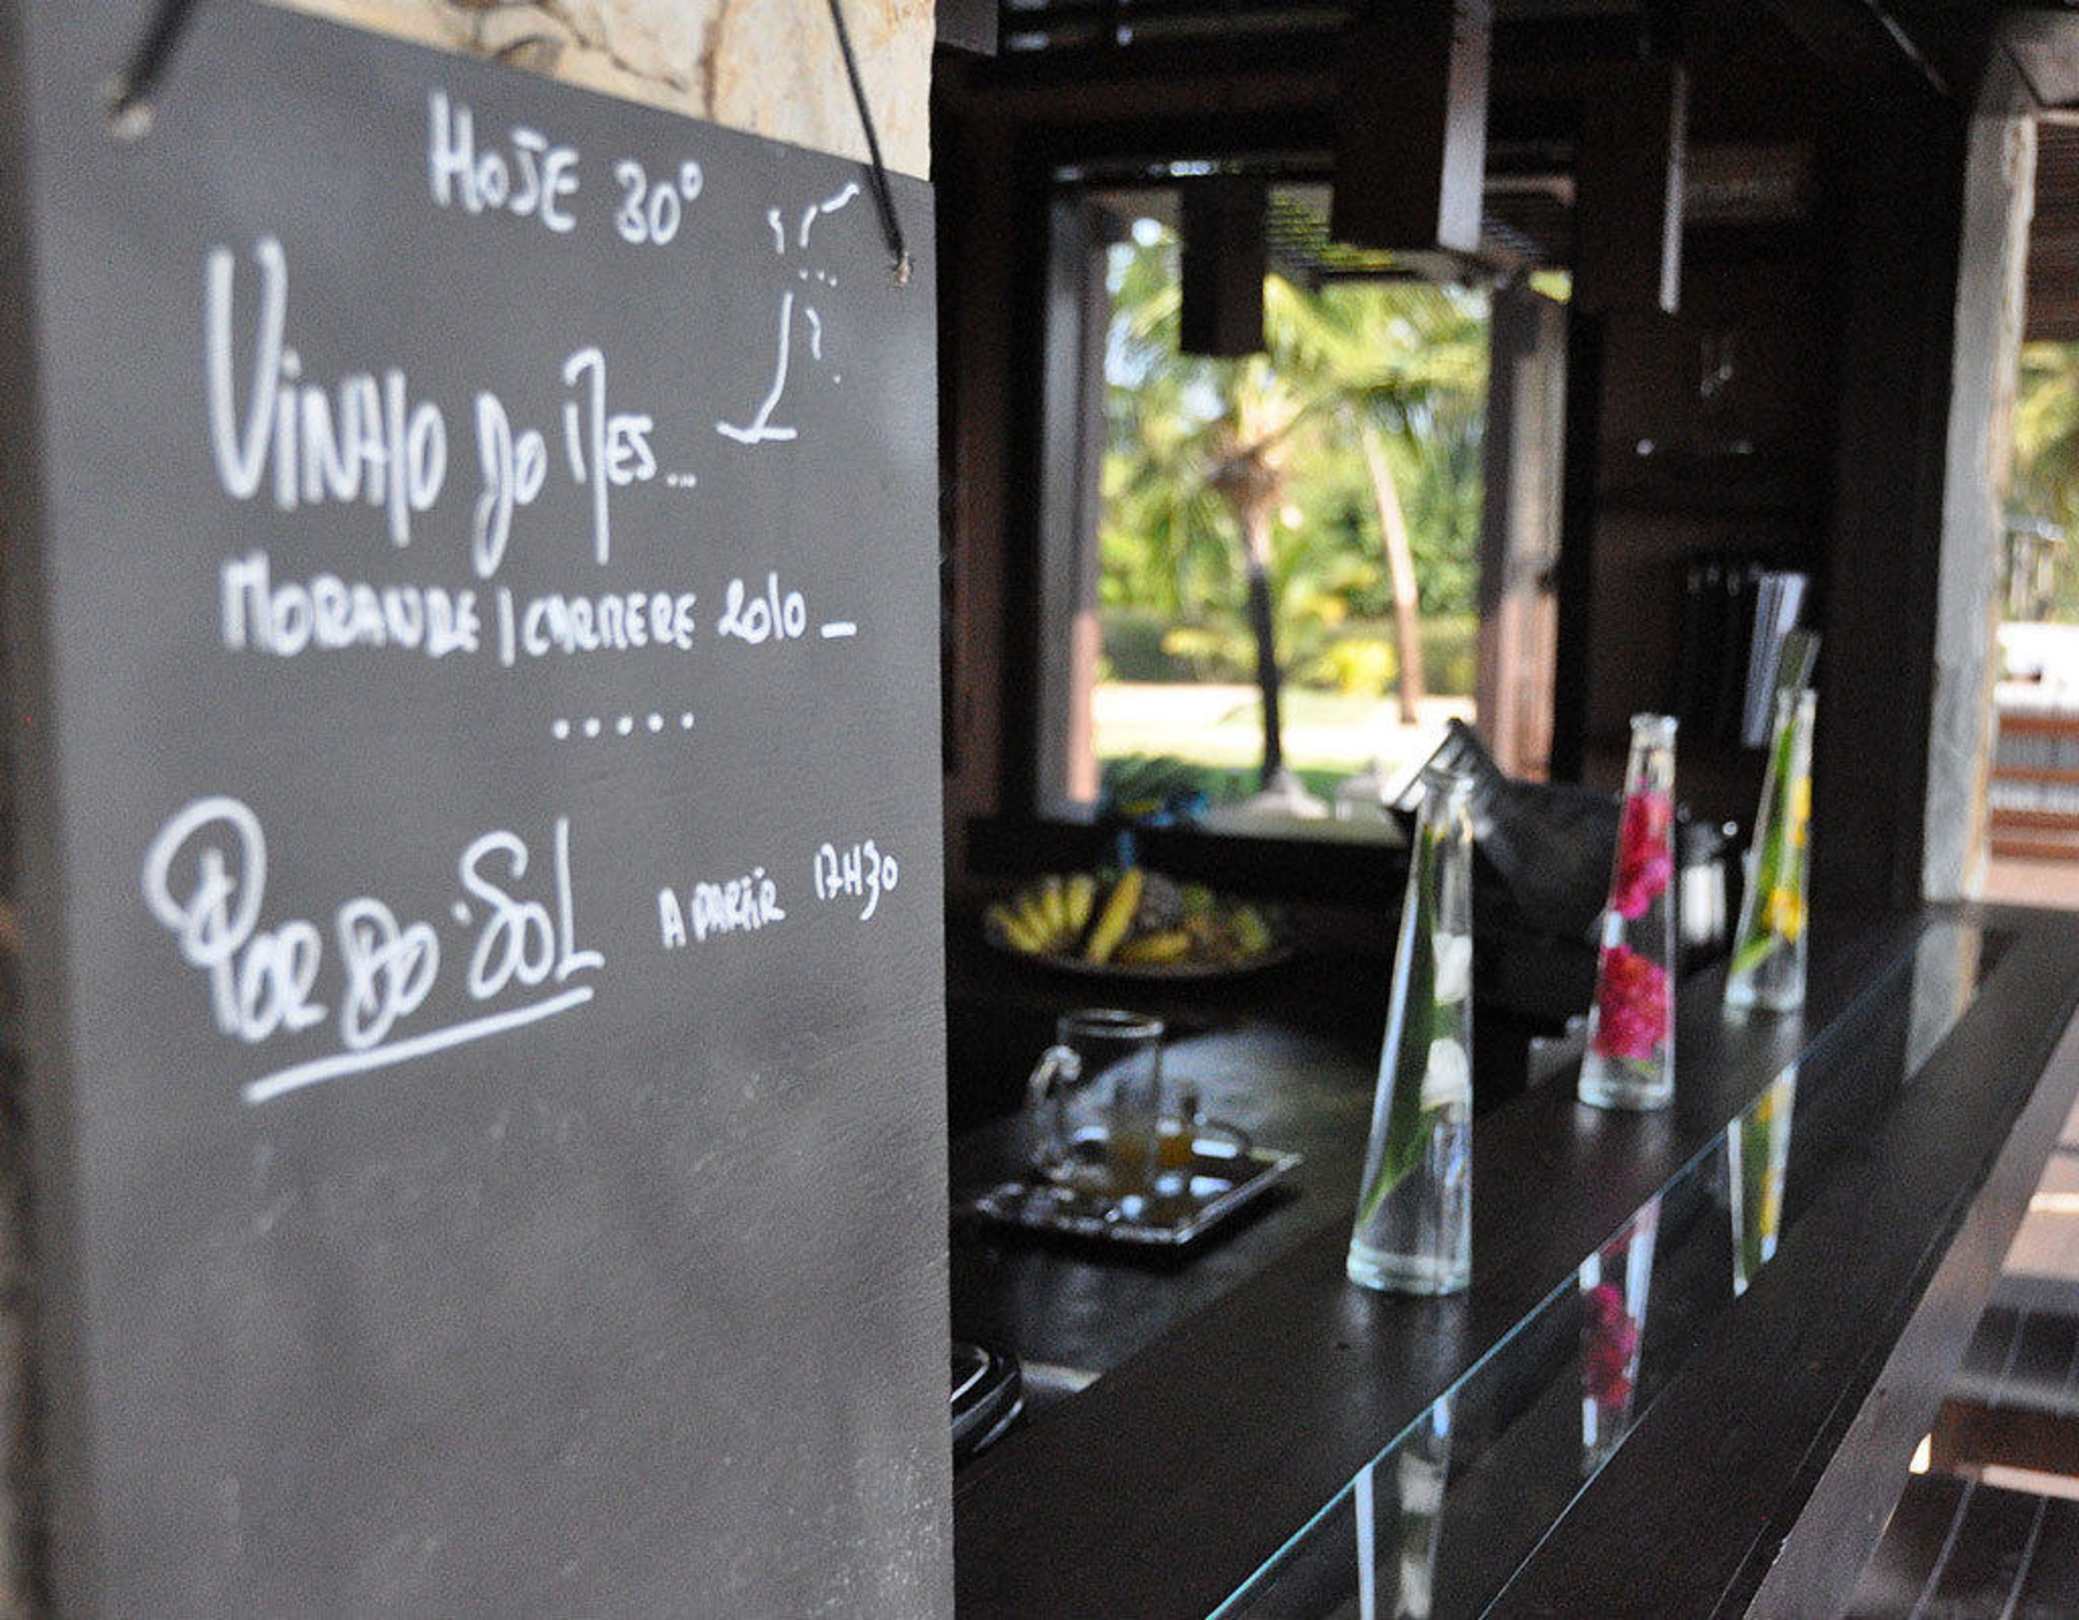 HOJE 30°
VINHO DO MES...
MORANDE | CARMERE 2010 _
.....
POR DO SOL A PARTIR 17H30